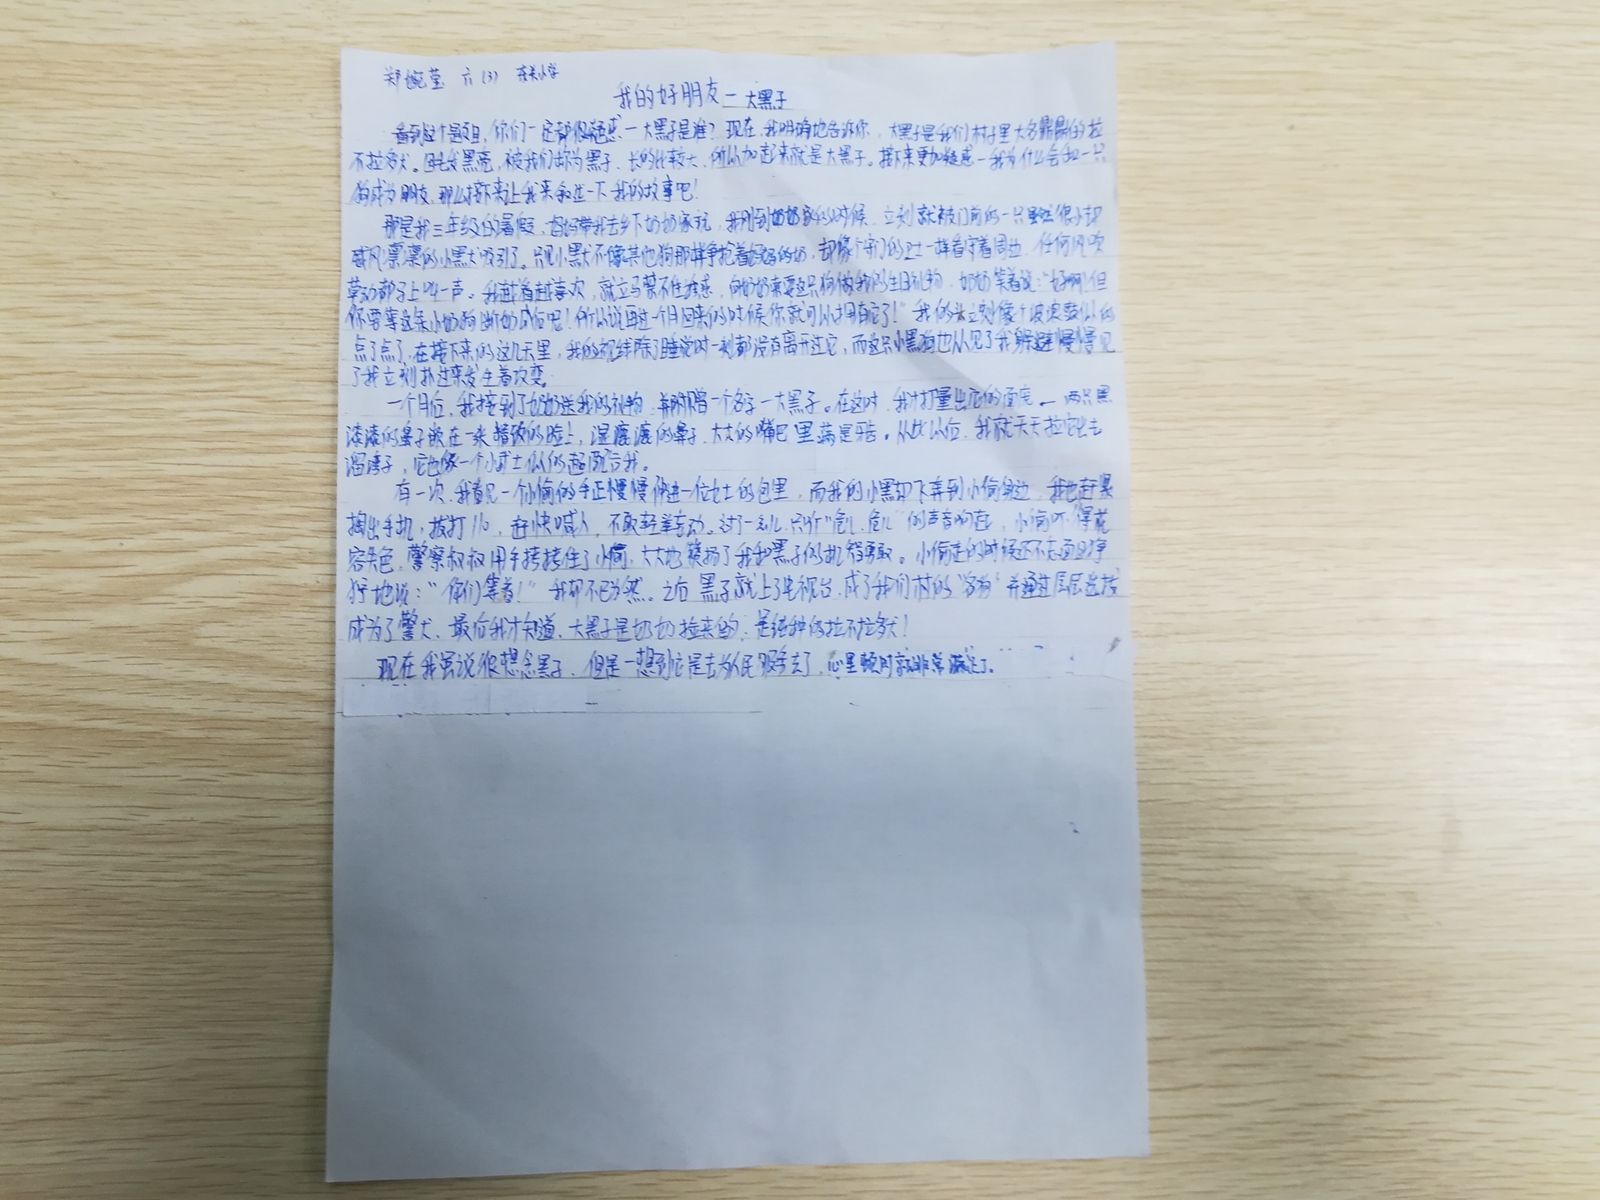 郑婉莹 六(3) 东关小学
我的好朋友一大黑子
看到这个题目,你们一定都很疑惑一大黑子是谁?现在,我明确地告诉你,大黑子是我们村子里大名鼎鼎的拉
不拉多犬。因毛发黑亮,被我们称为黑子,长的比较大,所以加起来就是大黑子。接下来更加疑惑一我为什么会和一只
狗成为朋友,那么接下来让我来叙述一下我的故事吧!
那是我三年级的暑假,妈妈带我去乡下奶奶家玩,我刚到奶奶家的时候,立刻就被门前的一只很小却
威风凛凛的小黑犬吸引了。只见小黑犬不像其他狗那样争抢着妈妈的奶,却像个守门的卫士一样看守着周边,任何风吹
草动都予上叫一声。我越看越喜欢,就立马禁不住诱惑,向奶奶来要这只狗做我的生日礼物,奶奶笑着说:“好啊!但
你要等这条小奶狗断奶以后吧!所以说再过一个月回来的时候你就可以拥有它了!”我的头立刻像个波浪鼓似的
点了点了,在接下来的这几天里,我的视线除了睡觉时一刻都没有离开过它,而这只小黑狗也从见了我躲避慢慢见
了我立刻扑过来发生着改变。
一个月后,我接到了奶奶送我的礼物,并附赠一个名字一大黑子。在这时,我才打量出它的面庞一两只黑
漆漆的鼻子嵌在一张精致的脸上,湿漉漉的鼻子,大大的嘴巴里满是牙齿。从此以后,我就天天拉它出去
溜弯子,它也像一个小武士似的超配合我。
有一次,我看见一个小偷的手正慢慢伸进一位女士的包里,而我的小黑却飞奔到小偷身边,我也赶紧
掏出手机,拨打110,赶快喊人,不敢轻举妄动。过了一会儿,只听“危儿危儿”的声音响起,小偷吓得花
容失色,警察叔叔用手拷拷住了小偷,大大地褒扬了我和黑子的机智勇敢。小偷走的时候还不忘面目狰
狞地说:“你们等着!”我却不已为然。之后黑子就上了电视台,成了我们村的“名狗”并通过层层选拔
成为了警犬、最后我才知道,大黑子是奶奶捡来的,是纯种的拉不拉多犬!
现在我虽说很想念黑子,但是一想到它是去为人民服务去了,心里顿时就非常满足了。